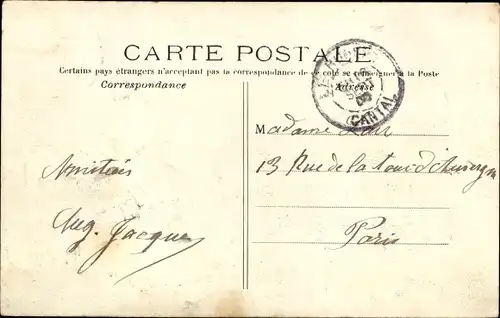 CARTE POSTALE
Certains pays étrangers n'acceptant pas la correspondance de ce côté se renseigner à la Poste
Correspondance
Adresse
(CANTAL)
Madame
13 Rue de la Tour d'Auvergne
Amitiés
Paris
Aug. Jacques